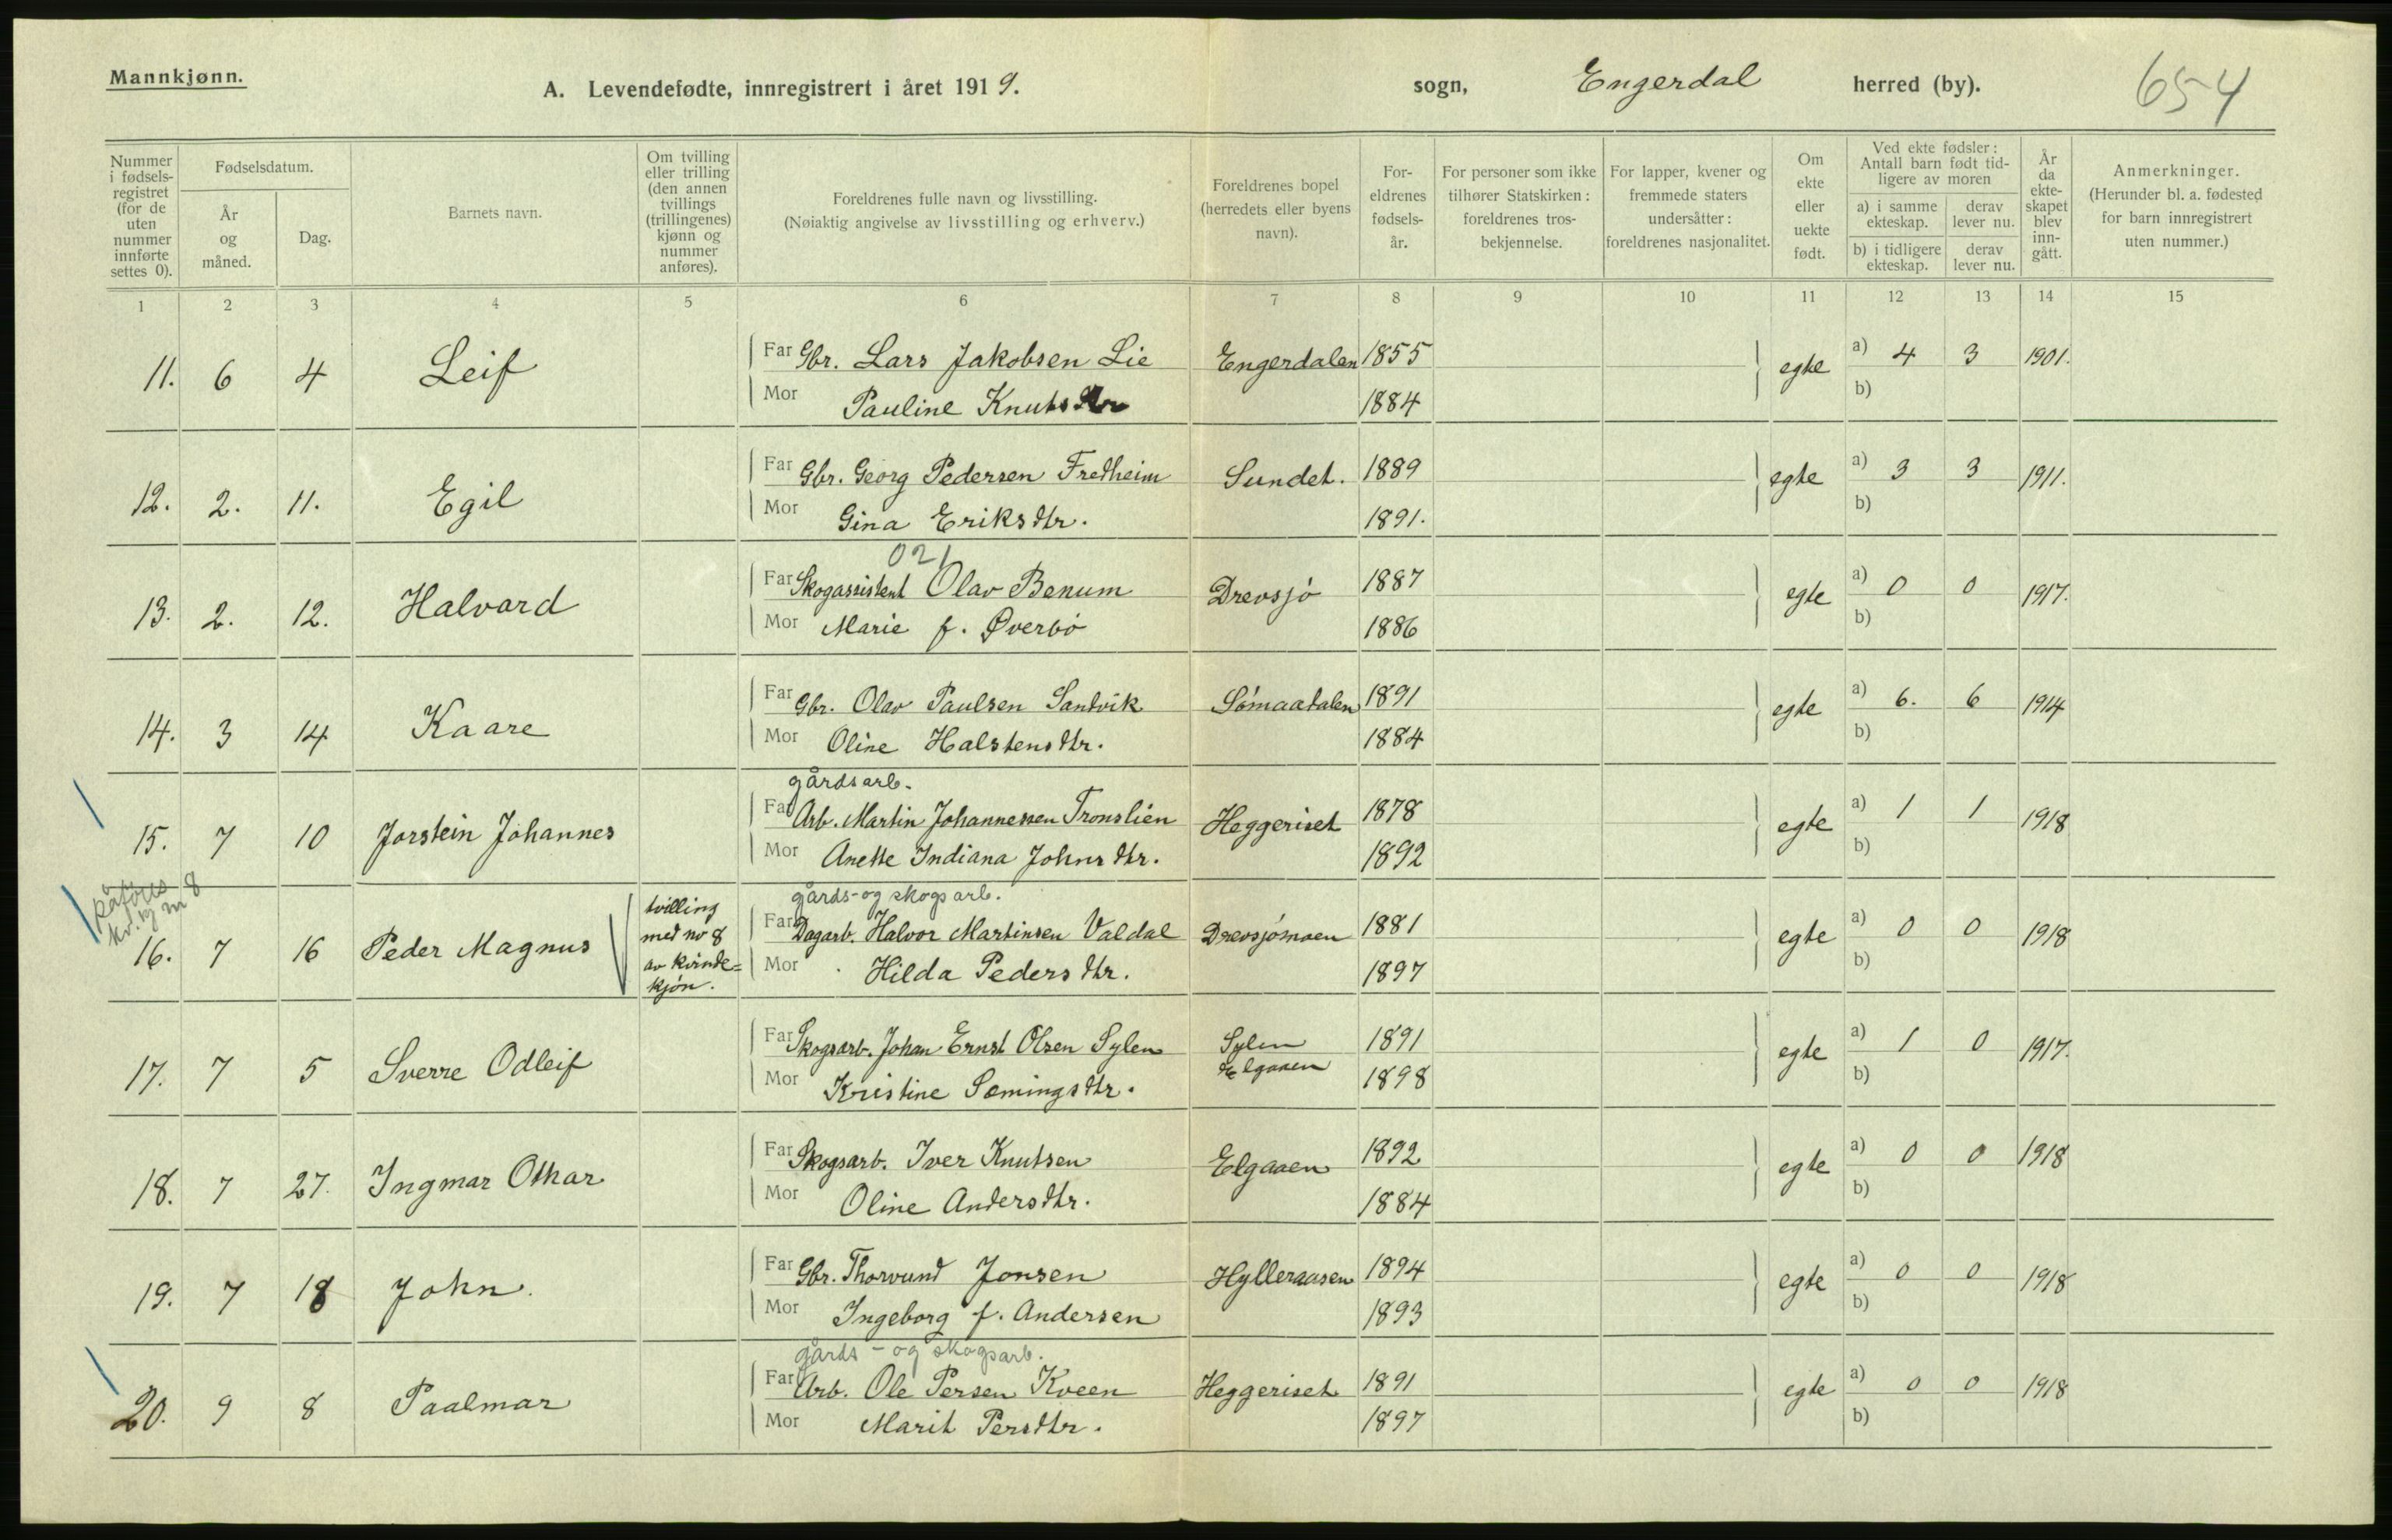 Mannkjønn.
A. Levendefødte, innregistrert i året 1919. sogn, Engerdal herred (by). 654
Nummer i fødselsregistret (for de uten nummer innførte settes 0).
Fødselsdatum.
År og måned.
Dag.
Barnets navn.
Om tvilling eller trilling (den annen tvillings (trillingenes) kjønn og nummer anføres).
Foreldrenes fulle navn og livsstilling.
(Nøiaktig angivelse av livsstilling og erhverv.)
Foreldrenes bopel (herredets eller byens navn).
For-eldrenes fødsels-år.
For personer som ikke tilhører Statskirken: foreldrenes tros-bekjennelse.
For lapper, kvener og fremmede staters undersåtter: foreldrenes nasjonalitet.
Om ekte eller uekte født.
Ved ekte fødsler: Antall barn født tid-ligere av moren
a) i samme ekteskap. derav lever nu.
b) i tidligere ekteskap. derav lever nu.
År da ekte-skapet blev inn-gått.
Anmerkninger.
(Herunder bl. a. fødested for barn innregistrert uten nummer.)
1 2 3 4 5 6 7 8 9 10 11 12 13 14 15
11. 6 4 Leif Far Gbr. Lars Jakobsen Lie Engerdalen 1855 egte a) 4 3 1901.
Mor Pauline Knutsdtr 1884 b)
12. 2. 11. Egil Far Gbr. Georg Pedersen Fredheim Sundet. 1889 egte a) 3 3 1911.
Mor Gina Eriksdtr. 1891. b)
021
13. 2. 12. Halvard Far Skogassistent Olav Benum Drevsjö 1887 egte a) 0 0 1917.
Mor Marie f. Øverbö 1886 b)
14. 3 14 Kaare Far Gbr. Olav Paulsen Sandvik Sömaadalen 1891 egte a) 6. 6 1914
Mor Oline Halstensdtr. 1884 b)
gårdsarb.
15. 7 10 Jorstein Johannes Far Arb. Martin Johannessen Tronslien Heggeriset 1878 egte a) 1 1 1918
Mor Anette Indiana Johnsdtr. 1892 b)
påføres kv.kj nr 8
gårds- og skogsarb.
16. 7 16 Peder Magnus tvilling med no 8 av kvinde=kjön. Far Dagarb. Halvor Martinsen Valdal Drevsjömoen 1881 egte a) 0 0 1918
Mor Hilda Pedersdtr. 1897 b)
17. 7 5 Sverre Odleif Far Skogsarb. Johan Ernst Olsen Sylen Sylen Elgaaen 1891 egte a) 1 0 1917.
Mor Kristine Semingsdtr. 1898 b)
18. 7 27. Ingmar Othar Far Skogsarb. Iver Knutsen Elgaaen 1892 egte a) 0 0 1918
Mor Oline Andersdtr. 1884 b)
19. 7 18 John. Far Gbr. Thorvund Jonsen Hylleraasen 1894 egte a) 0 0 1918
Mor Ingeborg f. Andersen 1893 b)
gårds- og skogsarb.
20. 9 8 Paalmar Far Arb. Ole Persen Kveen Heggeriset 1891 egte a) 0 0 1918
Mor Marit Persdtr. 1897 b)